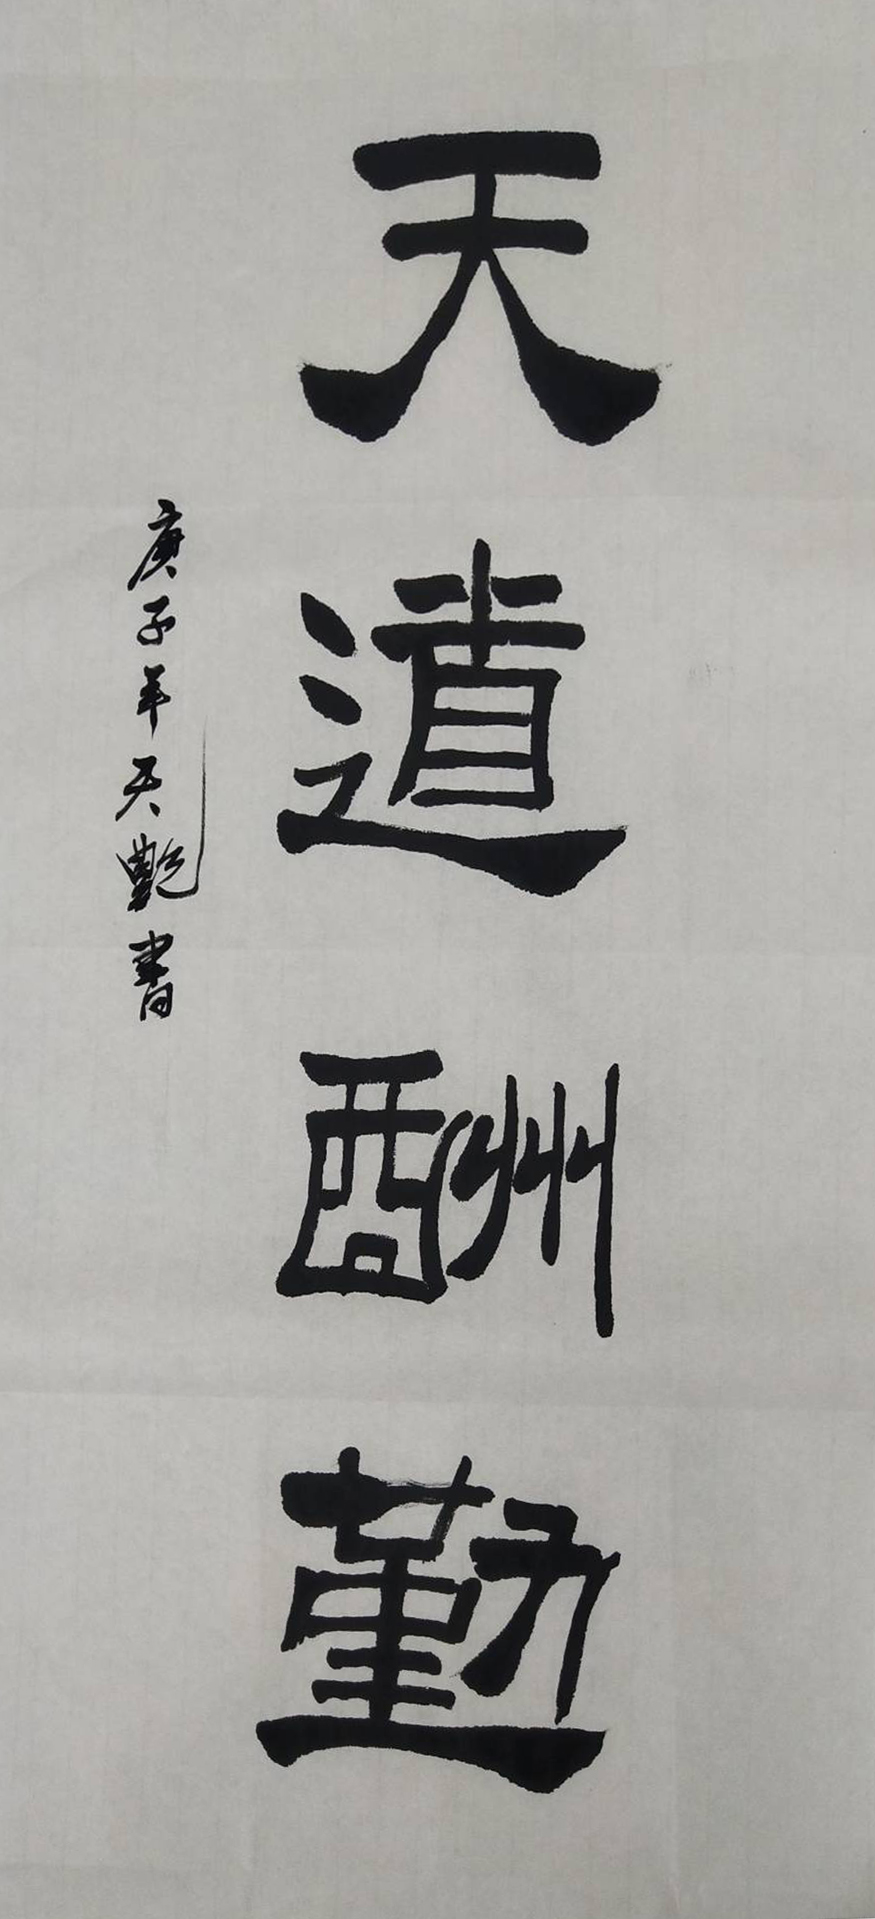 天道酬勤
庚子年天艷書